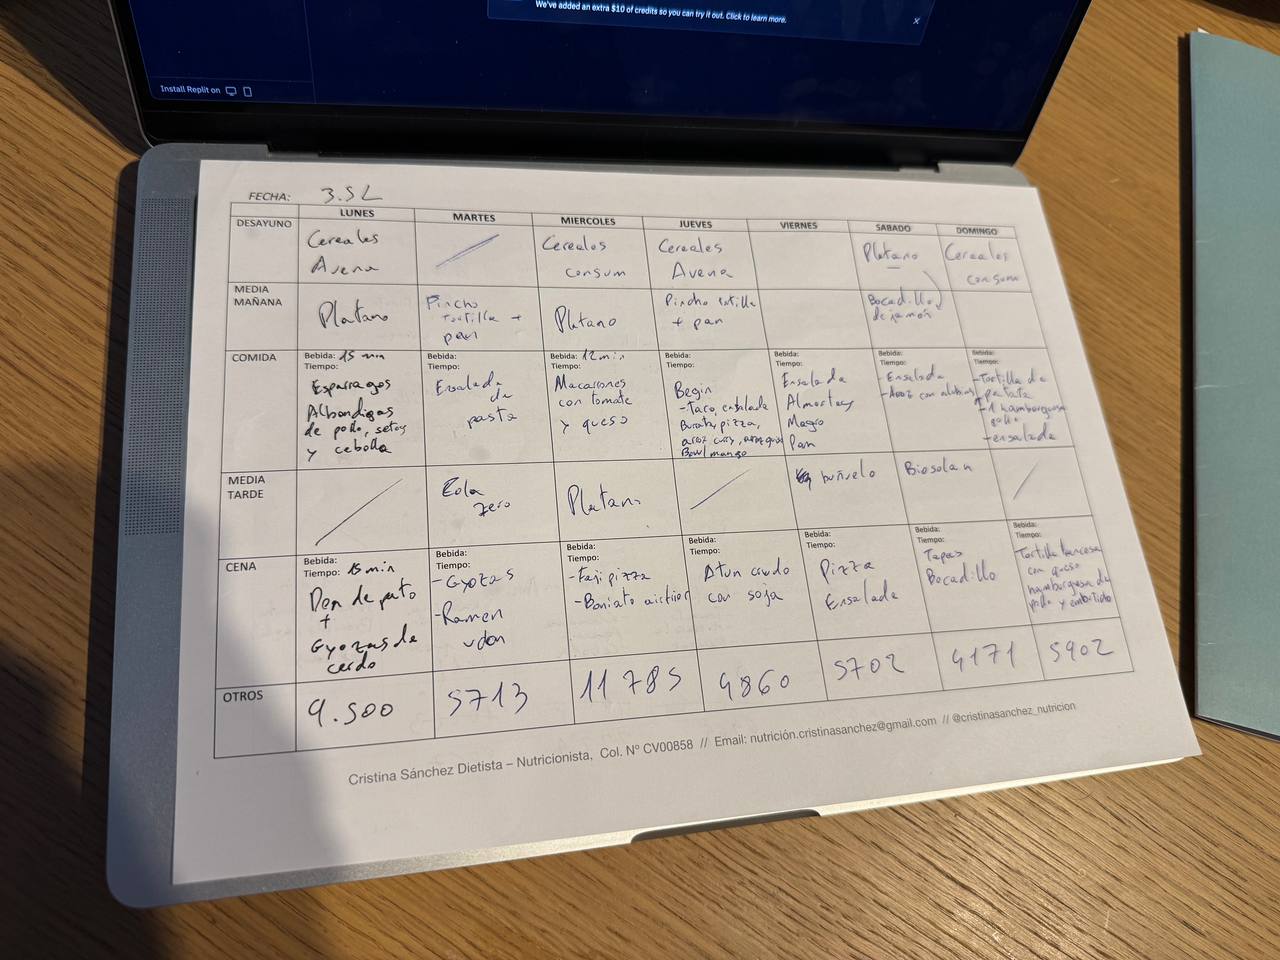 We've added an extra $10 of credits so you can try it out. Click to learn more.
Install Replit on
FECHA: 3.5 L
LUNES MARTES MIERCOLES JUEVES VIERNES SABADO DOMINGO
DESAYUNO
Cereales
Avena
Cereales
consum
Cereales
Avena
Platano
Cereales
consum
MEDIA
MAÑANA
Platano
Pincho
tortilla +
pan
Platano
Pincho tortilla
+ pan
Bocadillo
de jamón
COMIDA
Bebida: 15 min
Tiempo:
Esparragos
Albondigas
de pollo, setas
y cebolla
Bebida:
Tiempo:
Ensalada
de
pasta
Bebida: 12 min
Tiempo:
Macarrones
con tomate
y queso
Bebida:
Tiempo:
Begin
-Taco, ensalada
Burata, pizza,
arroz curry,
Bowl mango
Bebida:
Tiempo:
Ensalada
Magro
Pan
Bebida:
Tiempo:
-Ensalada
-Arroz con alubias
Bebida:
Tiempo:
-Tortilla de
patata
-1 hamburguesa
pollo
-ensalada
MEDIA
TARDE
Cola
zero
Platano
buñuelo
CENA
Bebida:
Tiempo: 15 min
de pato
+
Gyozas de
cerdo
Bebida:
Tiempo:
-Gyozas
-Ramen
udon
Bebida:
Tiempo:
-Fajipizza
-Boniato airfrier
Bebida:
Tiempo:
Atun crudo
con soja
Bebida:
Tiempo:
Pizza
Ensalada
Bebida:
Tiempo:
Tapas
Bocadillo
Bebida:
Tiempo:
Tortilla francesa
con queso
hamburguesa de
pollo y embutido
OTROS
9.500
5713
11785
4860
5702
4171
5902
Cristina Sánchez Dietista – Nutricionista, Col. Nº CV00858 // Email: nutrición.cristinasanchez@gmail.com // @cristinasanchez_nutricion